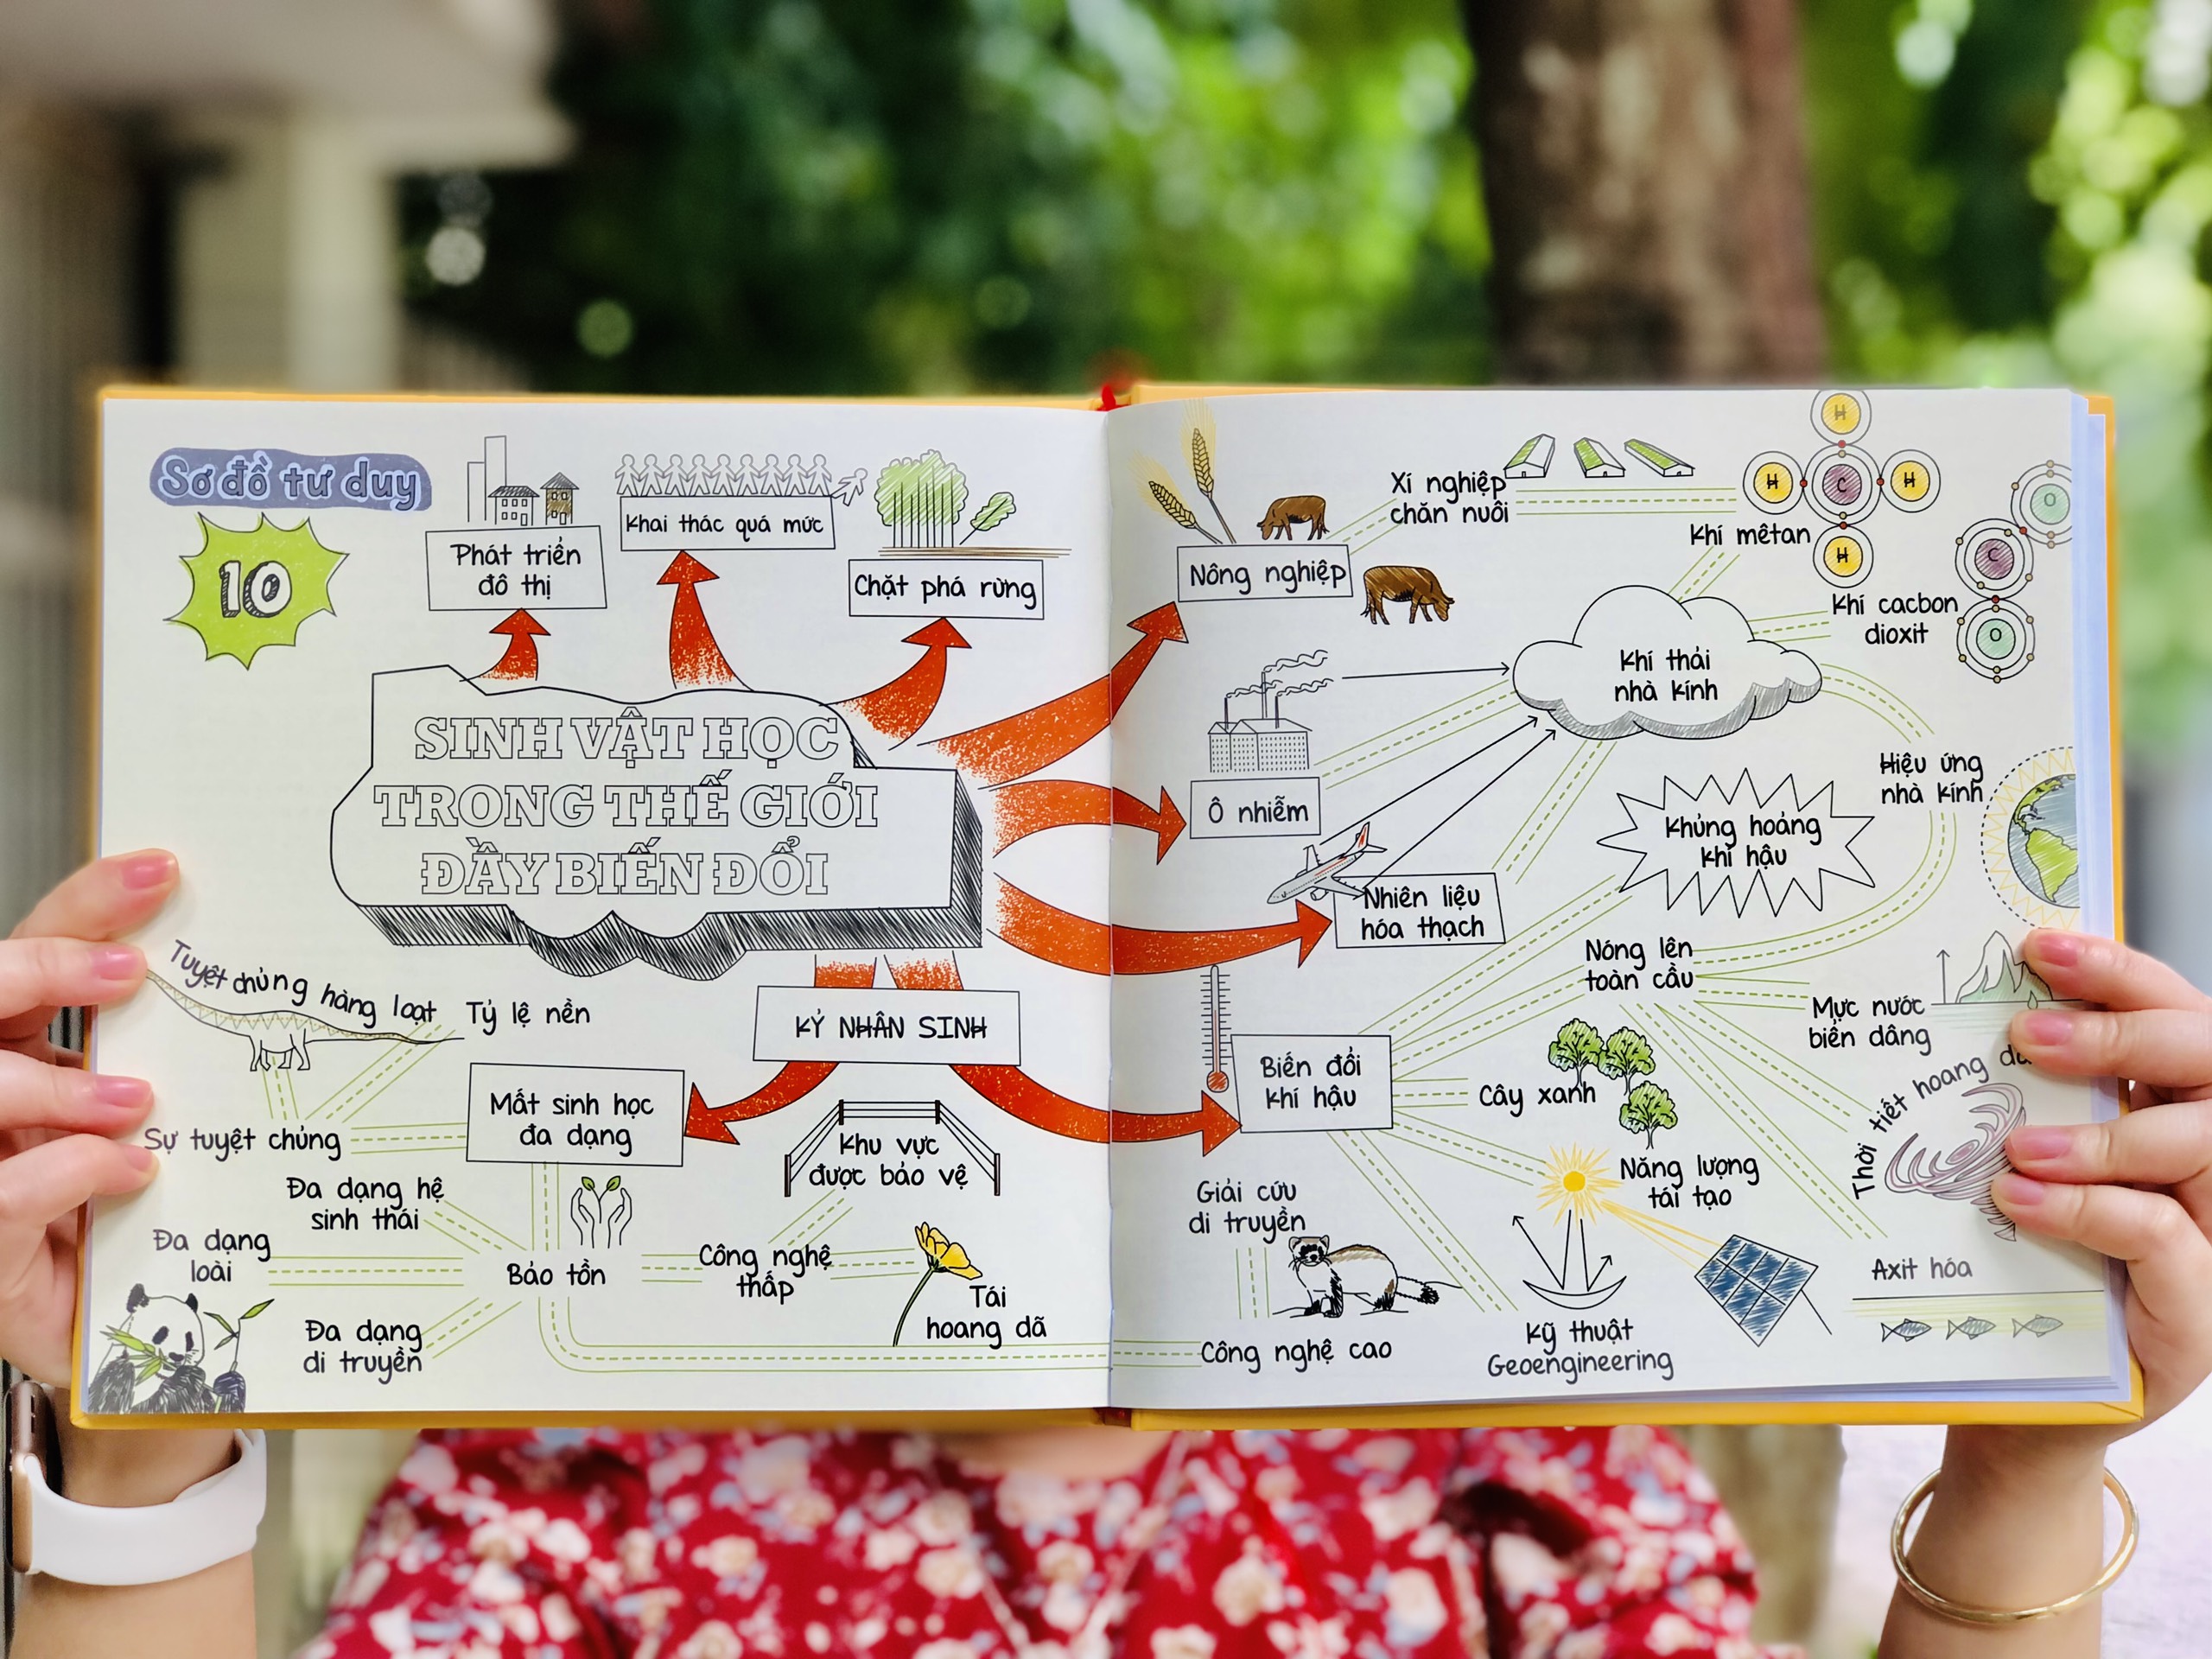 Sơ đồ tư duy
10
Phát triển
đô thị
Khai thác quá mức
Chặt phá rừng
SINH VẬT HỌC
TRONG THẾ GIỚI
ĐẦY BIẾN ĐỔI
Tuyệt chủng hàng loạt
Tỷ lệ nền
KỶ NHÂN SINH
Mất sinh học
đa dạng
Sự tuyệt chủng
Khu vực
được bảo vệ
Đa dạng hệ
sinh thái
Đa dạng
loài
Bảo tồn
Công nghệ
thấp
Tái
hoang dã
Đa dạng
di truyền
Nông nghiệp
Xí nghiệp
chăn nuôi
Khí mêtan
H
H
C
H
H
O
C
O
Khí cacbon
dioxit
Khí thải
nhà kính
Ô nhiễm
Hiệu ứng
nhà kính
Khủng hoảng
khí hậu
Nhiên liệu
hóa thạch
Nóng lên
toàn cầu
Mực nước
biển dâng
Biến đổi
khí hậu
Cây xanh
Thời tiết hoang
Năng lượng
tái tạo
Giải cứu
di truyền
Axit hóa
Công nghệ cao
Kỹ thuật
Geoengineering